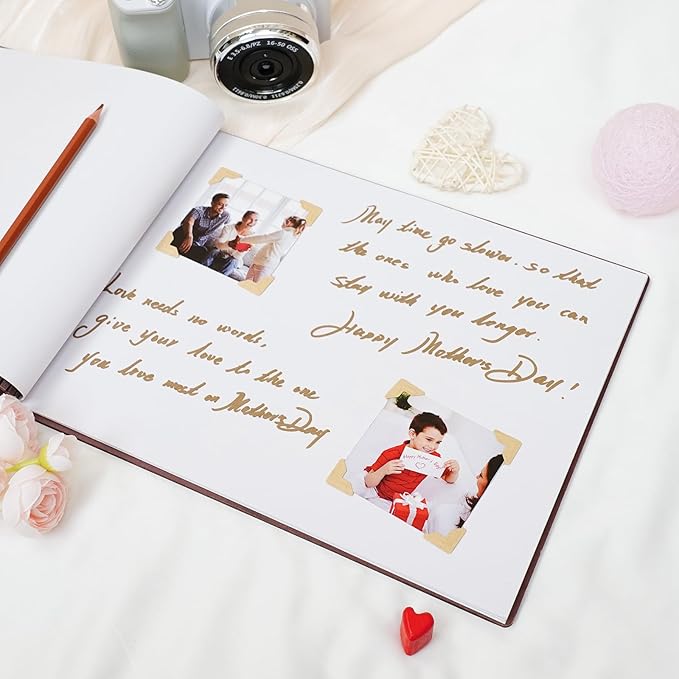 E 3.5-5.6/PZ 16-50 OSS
May time go slower. so that
the ones who love you can
stay with you longer.
Happy Mother's Day!
Love needs no words,
give your love to the one
you love most on Mother's Day
Happy Mother's Day